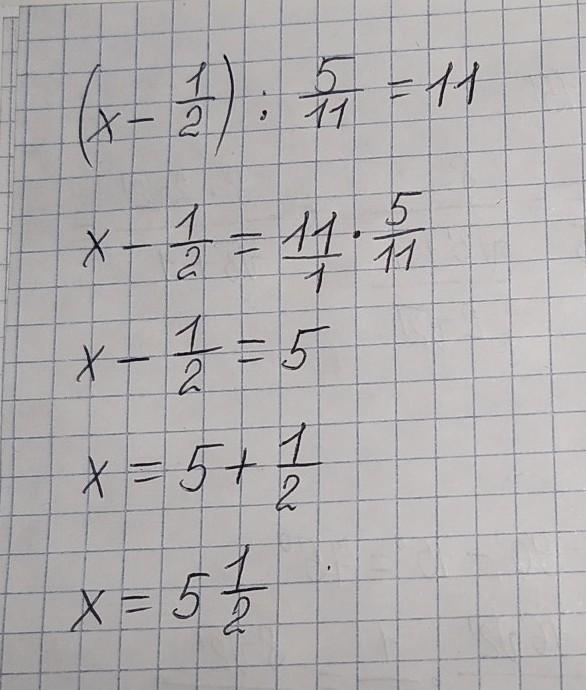 (x - 1/2) : 5/11 = 11
x - 1/2 = 11/1 · 5/11
x - 1/2 = 5
x = 5 + 1/2
x = 5 1/2